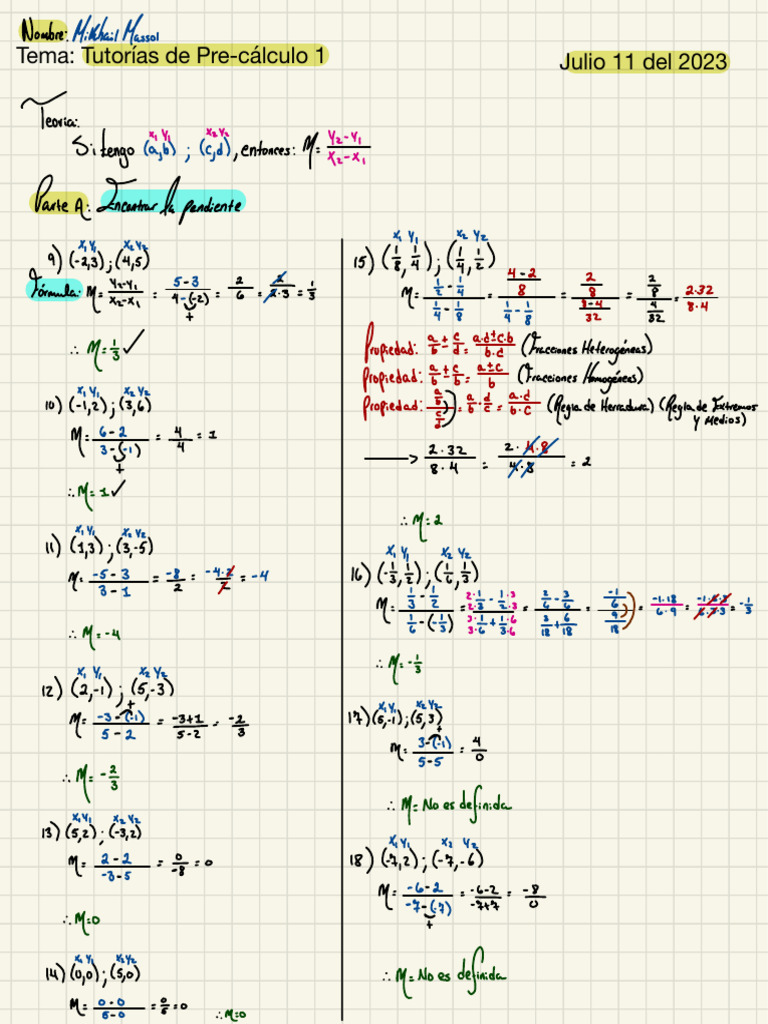 Nombre: Mikhail Massol
Tema: Tutorías de Pre-cálculo 1
Julio 11 del 2023
Teoría:
x₁ y₁ x₂ y₂
Si tengo (a,b) ; (c,d), entonces: M = (y₂-y₁)/(x₂-x₁)
Parte A: Encontrar la pendiente
x₁ y₁ x₂ y₂
9) (-2,3) ; (4,5)
Fórmula: M = (y₂-y₁)/(x₂-x₁) = (5-3)/(4-(-2)) = 2/6 = 2/(2·3) = 1/3
+
∴ M = 1/3 ✓
x₁ y₁ x₂ y₂
10) (-1,2) ; (3,6)
M = (6-2)/(3-(-1)) = 4/4 = 1
+
∴ M = 1 ✓
x₁ y₁ x₂ y₂
11) (1,3) ; (3,-5)
M = (-5-3)/(3-1) = -8/2 = (-4·2)/2 = -4
∴ M = -4
x₁ y₁ x₂ y₂
12) (2,-1) ; (5,-3)
+
M = (-3-(-1))/(5-2) = (-3+1)/(5-2) = -2/3
∴ M = -2/3
x₁ y₁ x₂ y₂
13) (5,2) ; (-3,2)
M = (2-2)/(-3-5) = 0/-8 = 0
∴ M = 0
x₁ y₁ x₂ y₂
14) (0,0) ; (5,0)
M = (0-0)/(5-0) = 0/5 = 0 ∴ M = 0
x₁ y₁ x₂ y₂
15) (1/8, 1/4) ; (1/4, 1/2)
M = (1/2 - 1/4)/(1/4 - 1/8) = ((4-2)/8)/(1/4 - 1/8) = (2/8)/((8-4)/32) = (2/8)/(4/32) = (2·32)/(8·4)
Propiedad: a/b ± c/d = (a·d±c·b)/(b·d) (Fracciones Heterogéneas)
Propiedad: a/b ± c/b = (a±c)/b (Fracciones Homogéneas)
Propiedad: (a/b)/(c/d) = a/b · d/c = (a·d)/(b·c) (Regla de Herradura) (Regla de Extremos
y Medios)
⟶ (2·32)/(8·4) = (2·4·8)/(4·8) = 2
∴ M = 2
x₁ y₁ x₂ y₂
16) (-1/3, 1/2) ; (1/6, 1/3)
M = (1/3 - 1/2)/(1/6 - (-1/3)) = (2·1/2·3 - 1·3/2·3)/(3·1/3·6 + 1·6/3·6) = (2/6 - 3/6)/(3/18 + 6/18) = (-1/6)/(9/18) = (-1·18)/(6·9) = (-1·6·3)/(6·3·3) = -1/3
∴ M = -1/3
x₁ y₁ x₂ y₂
17) (5,-1) ; (5,3)
+
M = (3-(-1))/(5-5) = 4/0
∴ M = No es definida
x₁ y₁ x₂ y₂
18) (-7,2) ; (-7,-6)
M = (-6-2)/(-7-(-7)) = (-6-2)/(-7+7) = -8/0
+
∴ M = No es definida